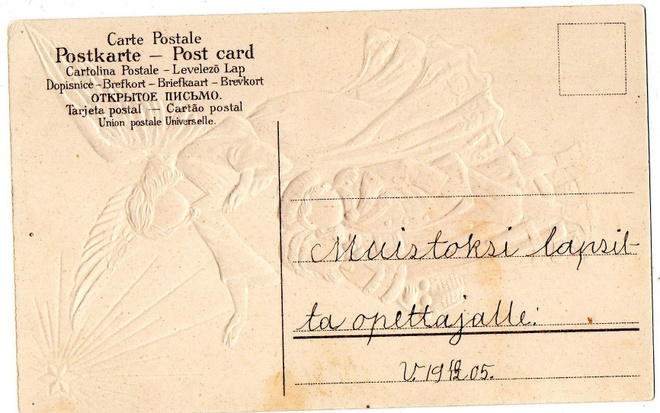 Carte Postale
Postkarte — Post card
Cartolina Postale – Levelező Lap
Dopisnice – Brefkort – Briefkaart – Brevkort
ОТКРЫТОЕ ПИСЬМО.
Tarjeta postal — Cartão postal
Union postale Universelle.
Muistoksi lapsil-
ta opettajalle: